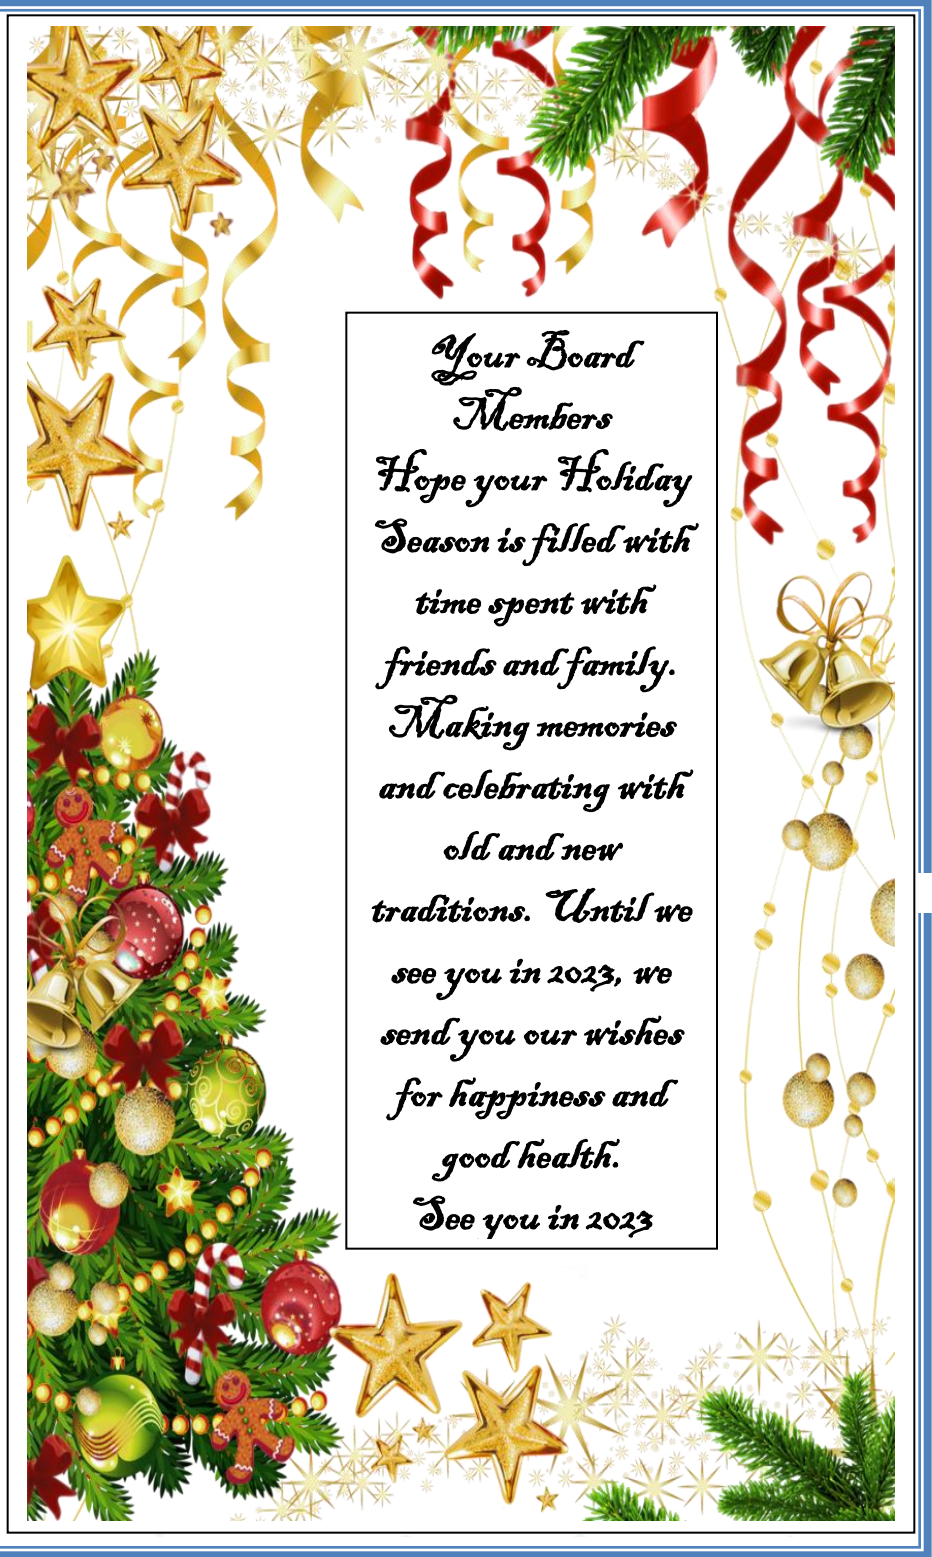 Your Board
Members
Hope your Holiday
Season is filled with
time spent with
friends and family.
Making memories
and celebrating with
old and new
traditions. Until we
see you in 2023, we
send you our wishes
for happiness and
good health.
See you in 2023